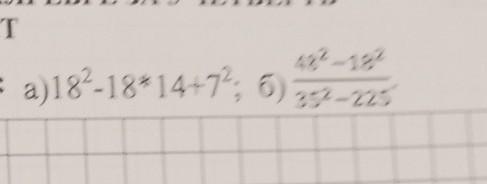 Т
: а)18²-18*14+7²; б) 48²-18² / 35²-225